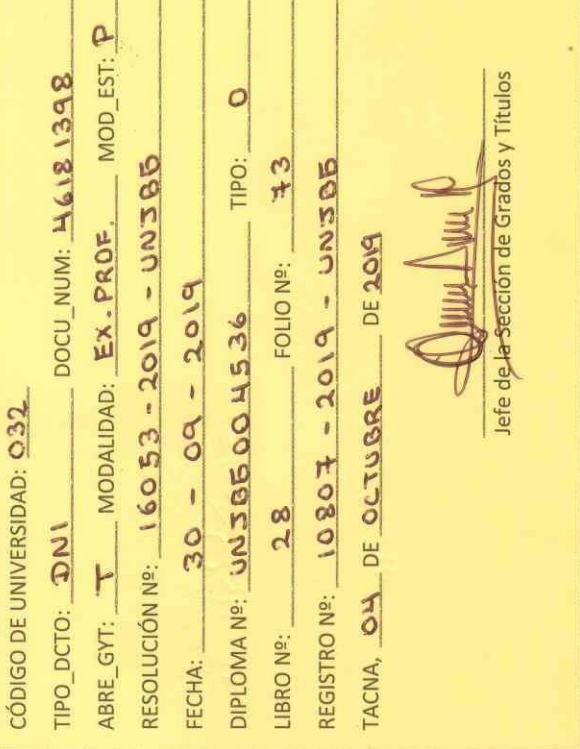 CÓDIGO DE UNIVERSIDAD: 032
TIPO_DCTO: DNI DOCU_NUM: 46181398
ABRE_GYT: T MODALIDAD: EX. PROF. MOD_EST: P
RESOLUCIÓN Nº: 16053 - 2019 - UNJBG
FECHA: 30 - 09 - 2019
DIPLOMA Nº: UNJBG004536 TIPO: O
LIBRO Nº: 28 FOLIO Nº: 73
REGISTRO Nº: 10807 - 2019 - UNJBG
TACNA, 04 DE OCTUBRE DE 2019
Jefe de la Sección de Grados y Títulos